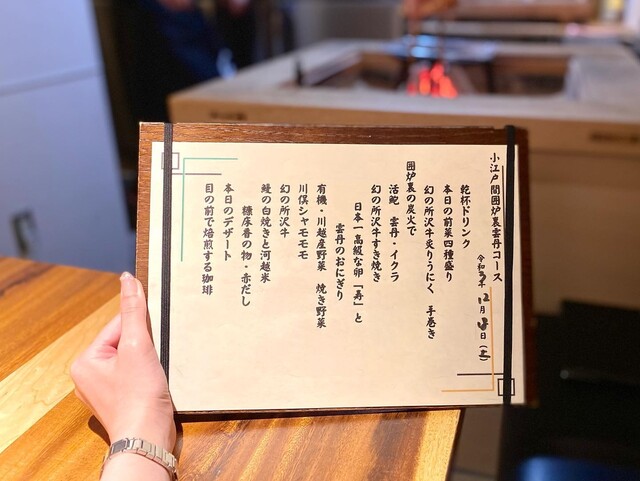 小江戸間囲炉裏雲丹コース
令和3年 12月 日(土)
乾杯ドリンク
本日の前菜四種盛り
幻の所沢牛炙りうにく 手巻き
囲炉裏の炭火で
活鮑 雲丹・イクラ
幻の所沢牛すき焼き
日本一高級な卵「寿」と
雲丹のおにぎり
有機・川越産野菜 焼き野菜
川俣シャモモモ
幻の所沢牛
鰻の白焼きと河越米
糠床香の物・赤だし
本日のデザート
目の前で焙煎する珈琲